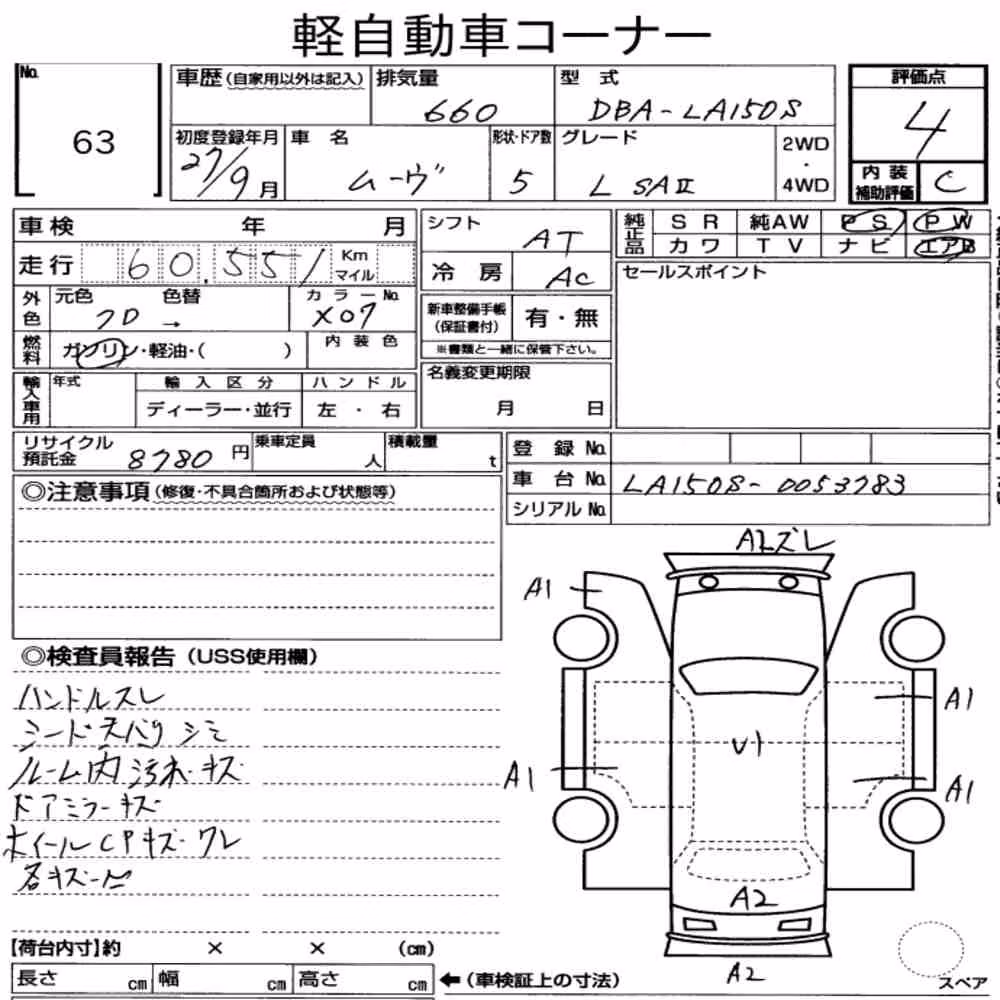 軽自動車コーナー
No. 63
車歴(自家用以外は記入)
排気量 660
型式 DBA-LA150S
評価点 4
初度登録年月 27/9月
車名 ムーヴ
形状・ドア数 5
グレード L SAⅡ
2WD・4WD
内装補助評価 C
車検 年 月
走行 60,551 Km マイル
シフト AT
冷房 AC
純正品 SR 純AW PS PW
カワ TV ナビ エアB
セールスポイント
外色 元色 色替 カラーNo. X07
→
燃料 ガソリン・軽油・( )
内装色
新車整備手帳(保証書付) 有・無
※書類と一緒に保管下さい。
輸入車用 年式 輸入区分 ハンドル
ディーラー・並行 左・右
名義変更期限
月 日
リサイクル預託金 8780 円
乗車定員 人
積載量 t
登録No.
車台No. LA150S-0053783
シリアルNo.
◎注意事項(修復・不具合箇所および状態等)
◎検査員報告(USS使用欄)
ハンドルスレ
シート天バリシミ
ルーム内汚れキズ
ドアミラーキズ
ホイールCPキズ・ワレ
各キズ凹
A2ズレ
A1
A1
U1
A1
A1
A2
A2
スペア
【荷台内寸】約 × × (cm)
長さ cm 幅 cm 高さ cm
←(車検証上の寸法)